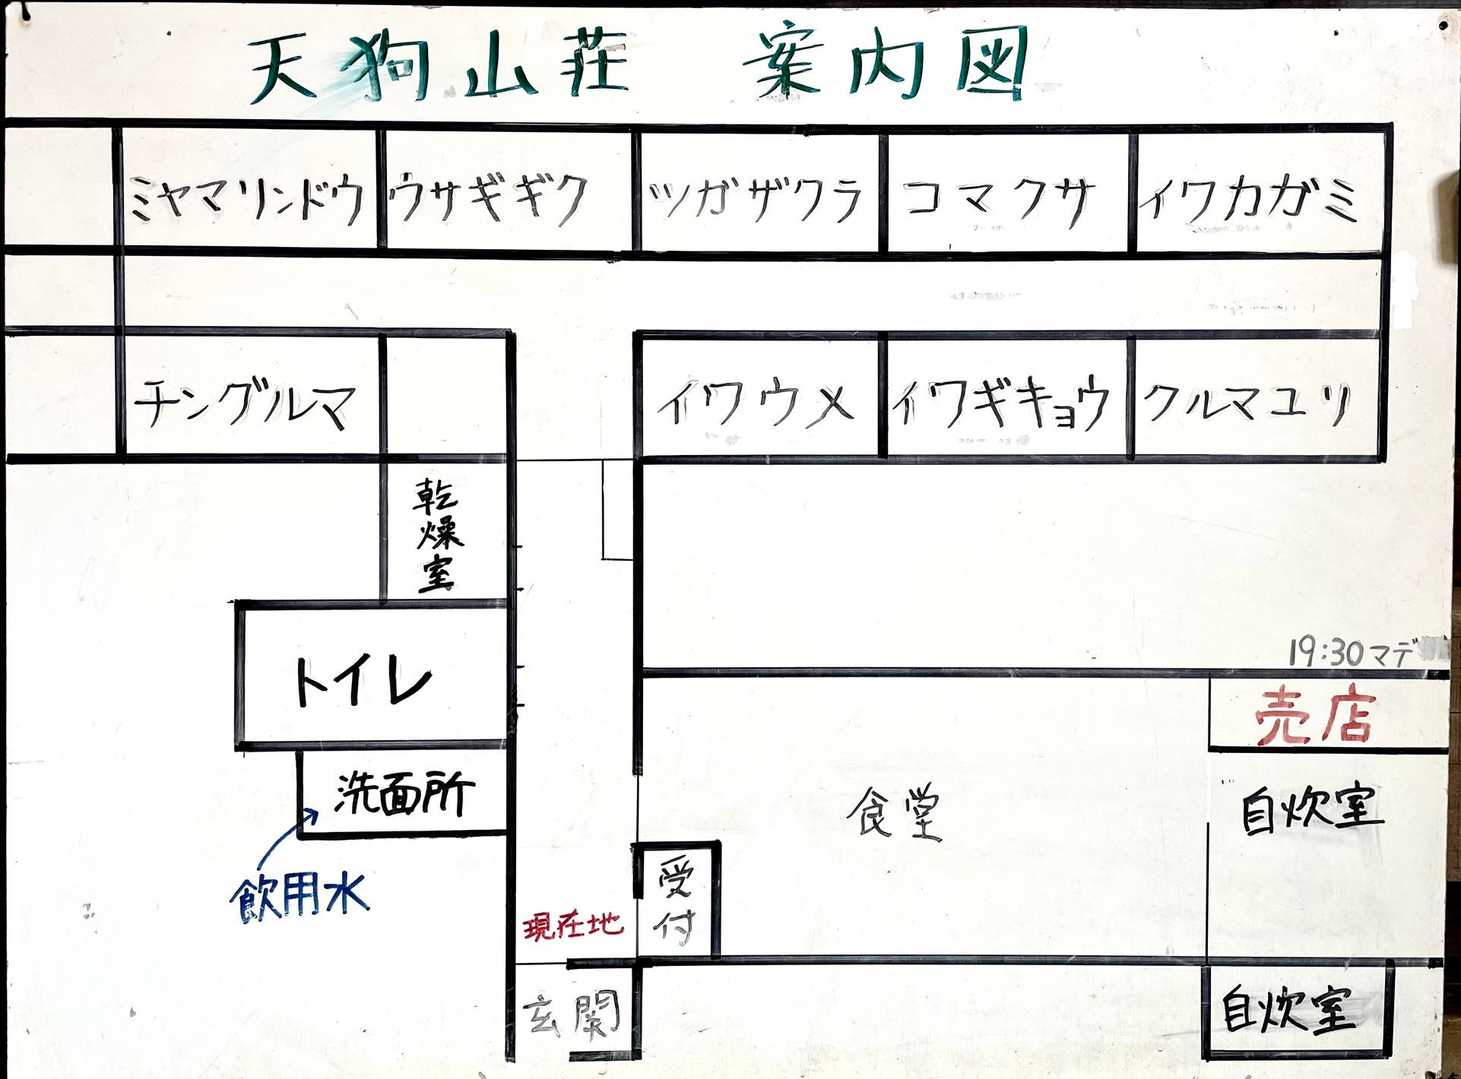 天狗山荘 案内図
ミヤマリンドウ
ウサギギク
ツガザクラ
コマクサ
イワカガミ
チングルマ
イワウメ
イワギキョウ
クルマユリ
乾燥室
トイレ
19:30マデ
売店
洗面所
食堂
自炊室
飲用水
受付
現在地
玄関
自炊室